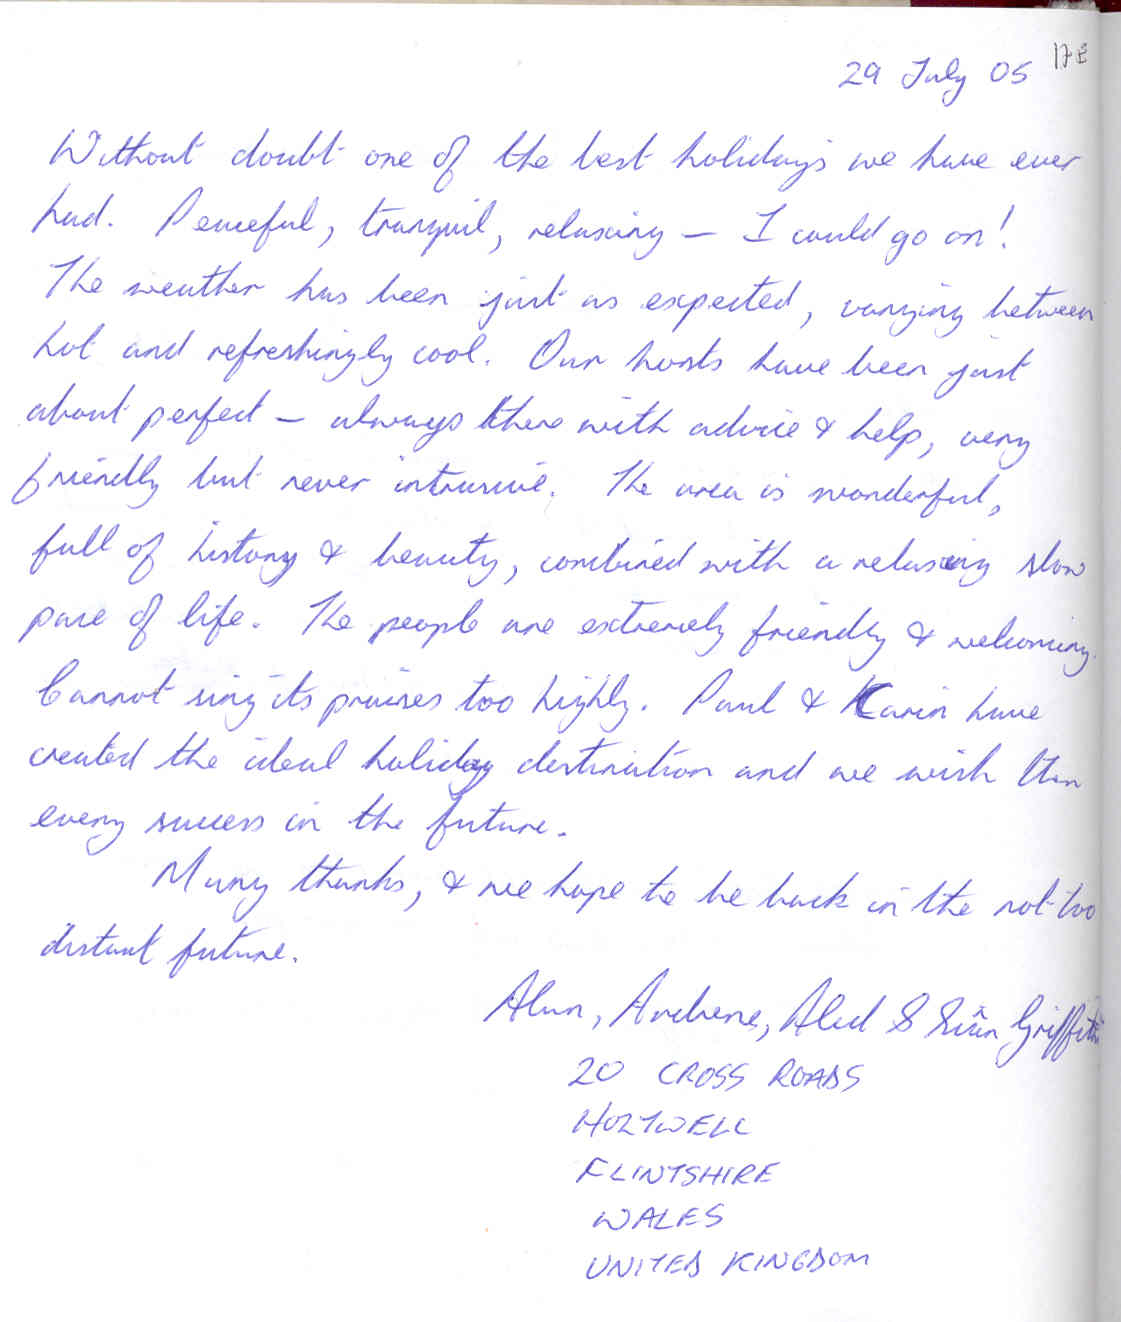 29 July 05
Without doubt one of the best holidays we have ever
had. Peaceful, tranquil, relaxing – I could go on!
The weather has been just as expected, varying between
hot and refreshingly cool. Our hosts have been just
about perfect – always there with advice & help, very
friendly but never intrusive. The area is wonderful,
full of history & beauty, combined with a relaxing slow
pace of life. The people are extremely friendly & welcoming.
Cannot sing its praises too highly. Paul & Karin have
created the ideal holiday destination and we wish them
every success in the future.
Many thanks, & we hope to be back in the not too
distant future.
Alun, Andrene, Aled & Siân
20 CROSS ROADS
HOLYWELL
FLINTSHIRE
WALES
UNITED KINGDOM